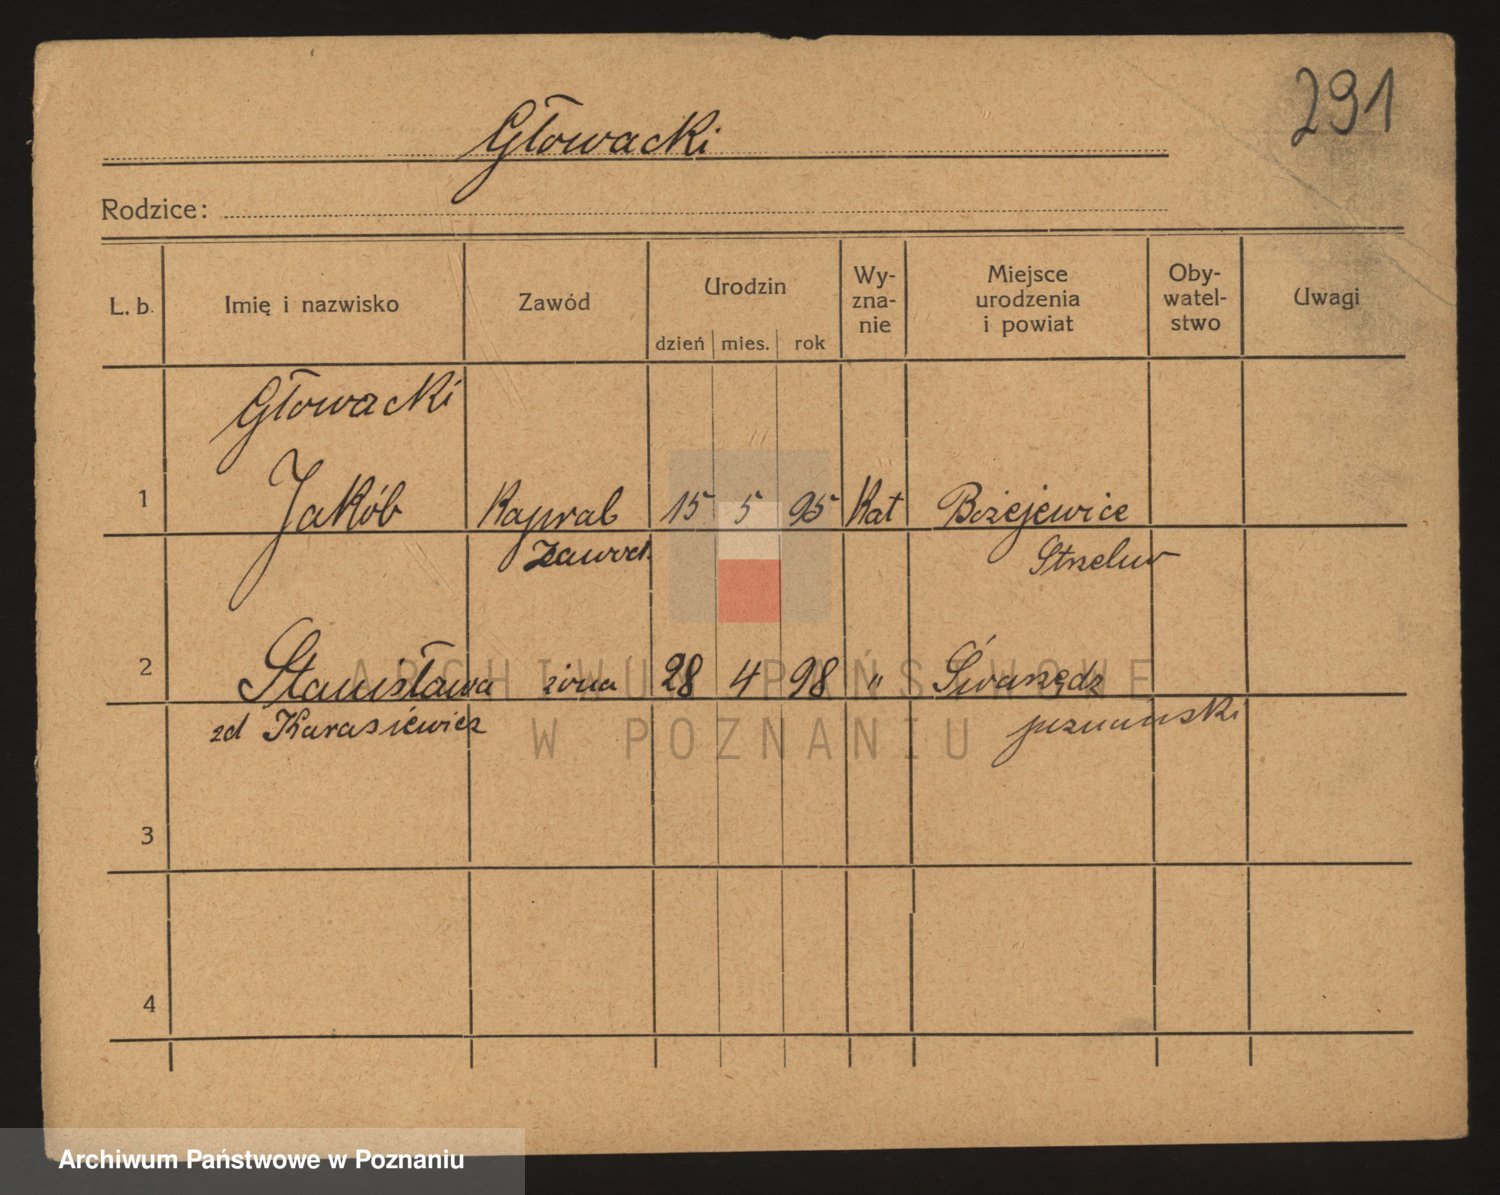 291
Głowacki
Rodzice:
L. b. Imię i nazwisko Zawód Urodzin Wy-zna-nie Miejsce urodzenia i powiat Oby-watel-stwo Uwagi
dzień mies. rok
Głowacki
1 Jakób Kapral 15 5 95 Kat Bożejewice
Zawod. Strzelno
2 Stanisława żona 28 4 98 " Swarzędz
zd Karasiewicz poznański
3
4
ARCHIWUM PAŃSTWOWE
W POZNANIU
Archiwum Państwowe w Poznaniu